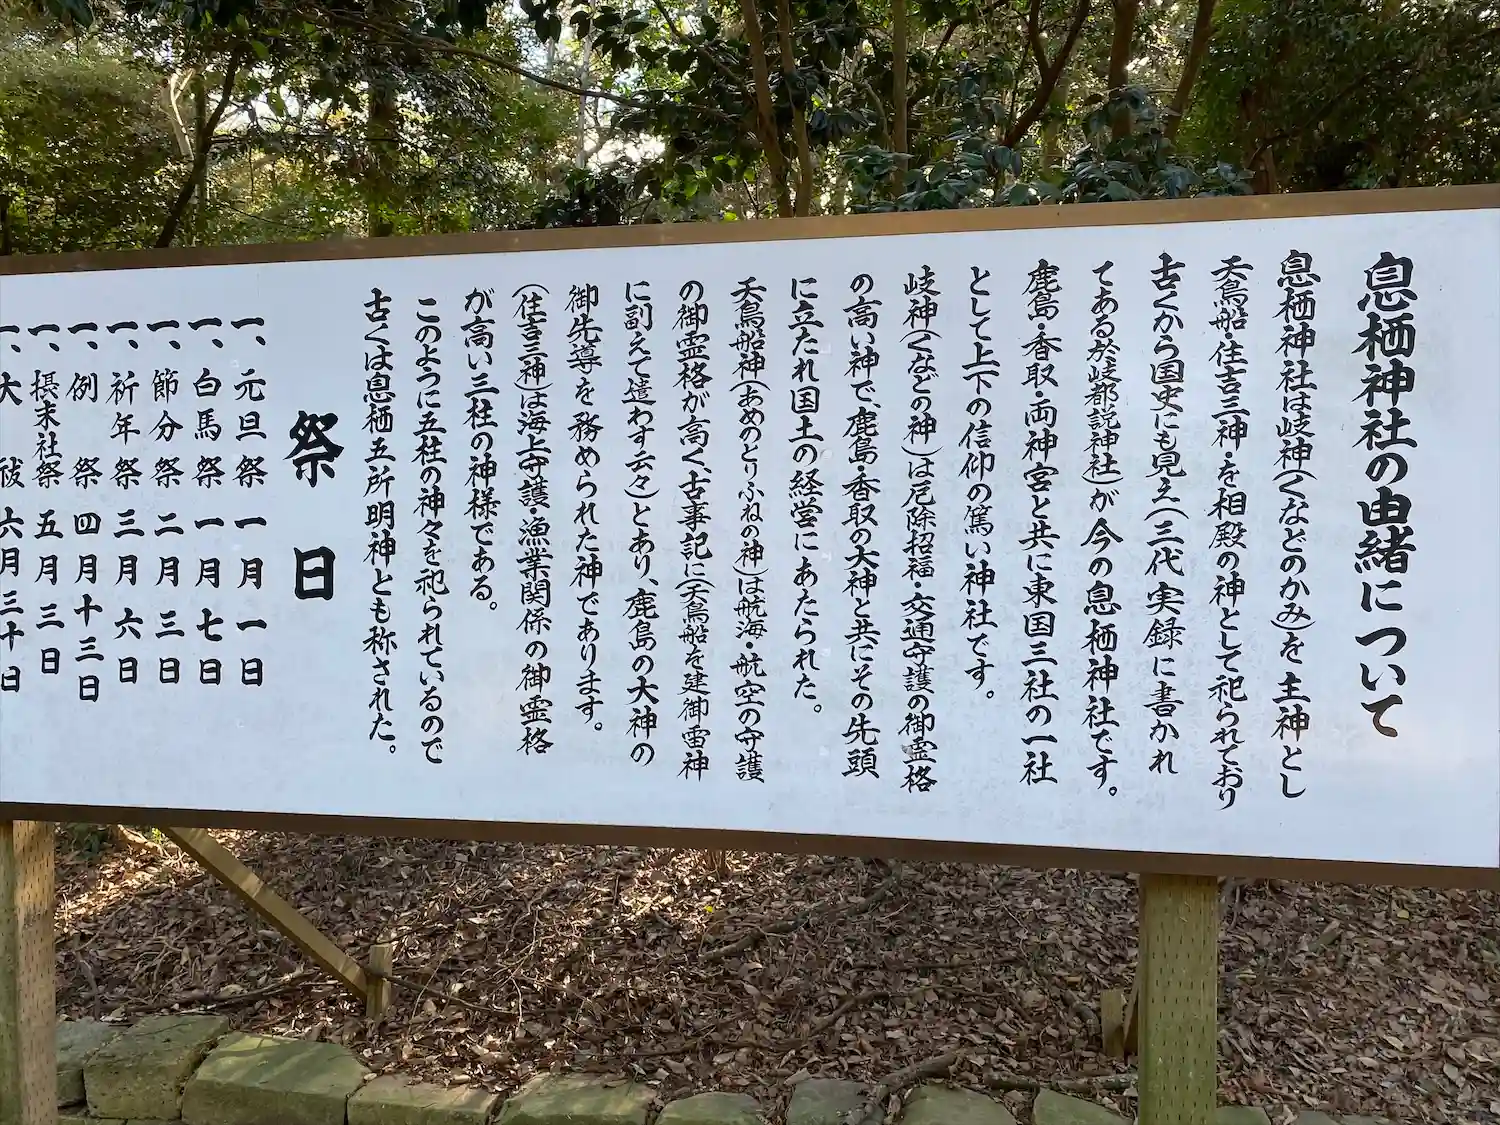 息栖神社の由緒について
息栖神社は岐神(くなどのかみ)を主神とし
天鳥船・住吉三神・を相殿の神として祀られており
古くから国史にも見え(三代実録に書かれ
てある於岐都説神社)が今の息栖神社です。
鹿島・香取・両神宮と共に東国三社の一社
として上下の信仰の篤い神社です。
岐神(くなどの神)は厄除招福・交通守護の御霊格
の高い神で、鹿島・香取の大神と共にその先頭
に立たれ国土の経営にあたられた。
天鳥船神(あめのとりふねの神)は航海・航空の守護
の御霊格が高く、古事記に(天鳥船を建御雷神
に副えて遣わす云々)とあり、鹿島の大神の
御先導を務められた神であります。
(住吉三神)は海上守護・漁業関係の御霊格
が高い三柱の神様である。
このように五柱の神々を祀られているので
古くは息栖五所明神とも称された。
祭日
一、元旦祭 一月一日
一、白馬祭 一月七日
一、節分祭 二月三日
一、祈年祭 三月六日
一、例祭 四月十三日
一、摂末社祭 五月三日
一、大祓 六月三十日